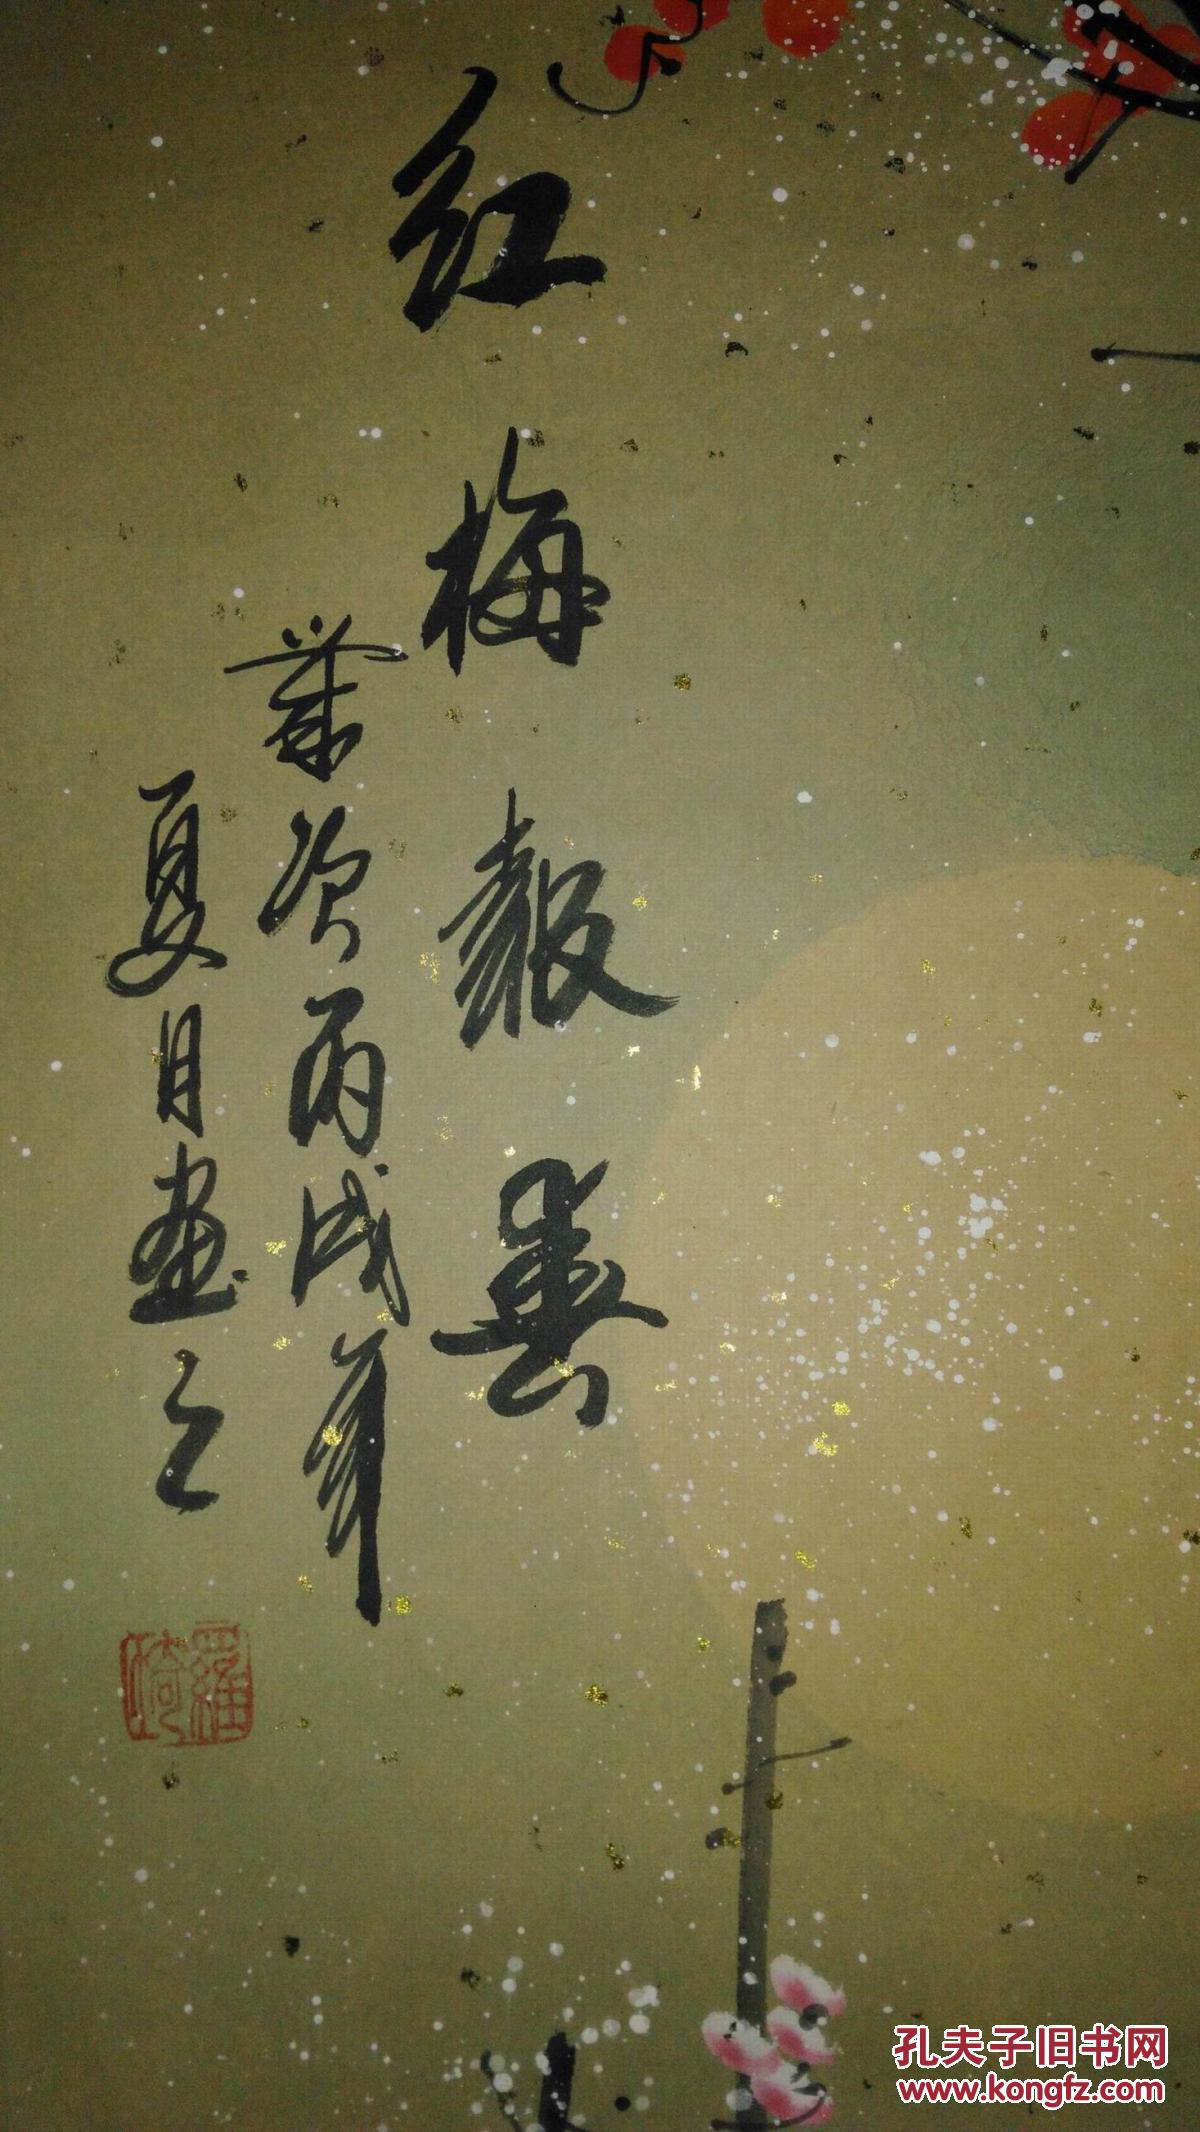 红梅報春
岁次丙戌年
夏月画之
羅琦
孔夫子旧书网
www.kongfz.com